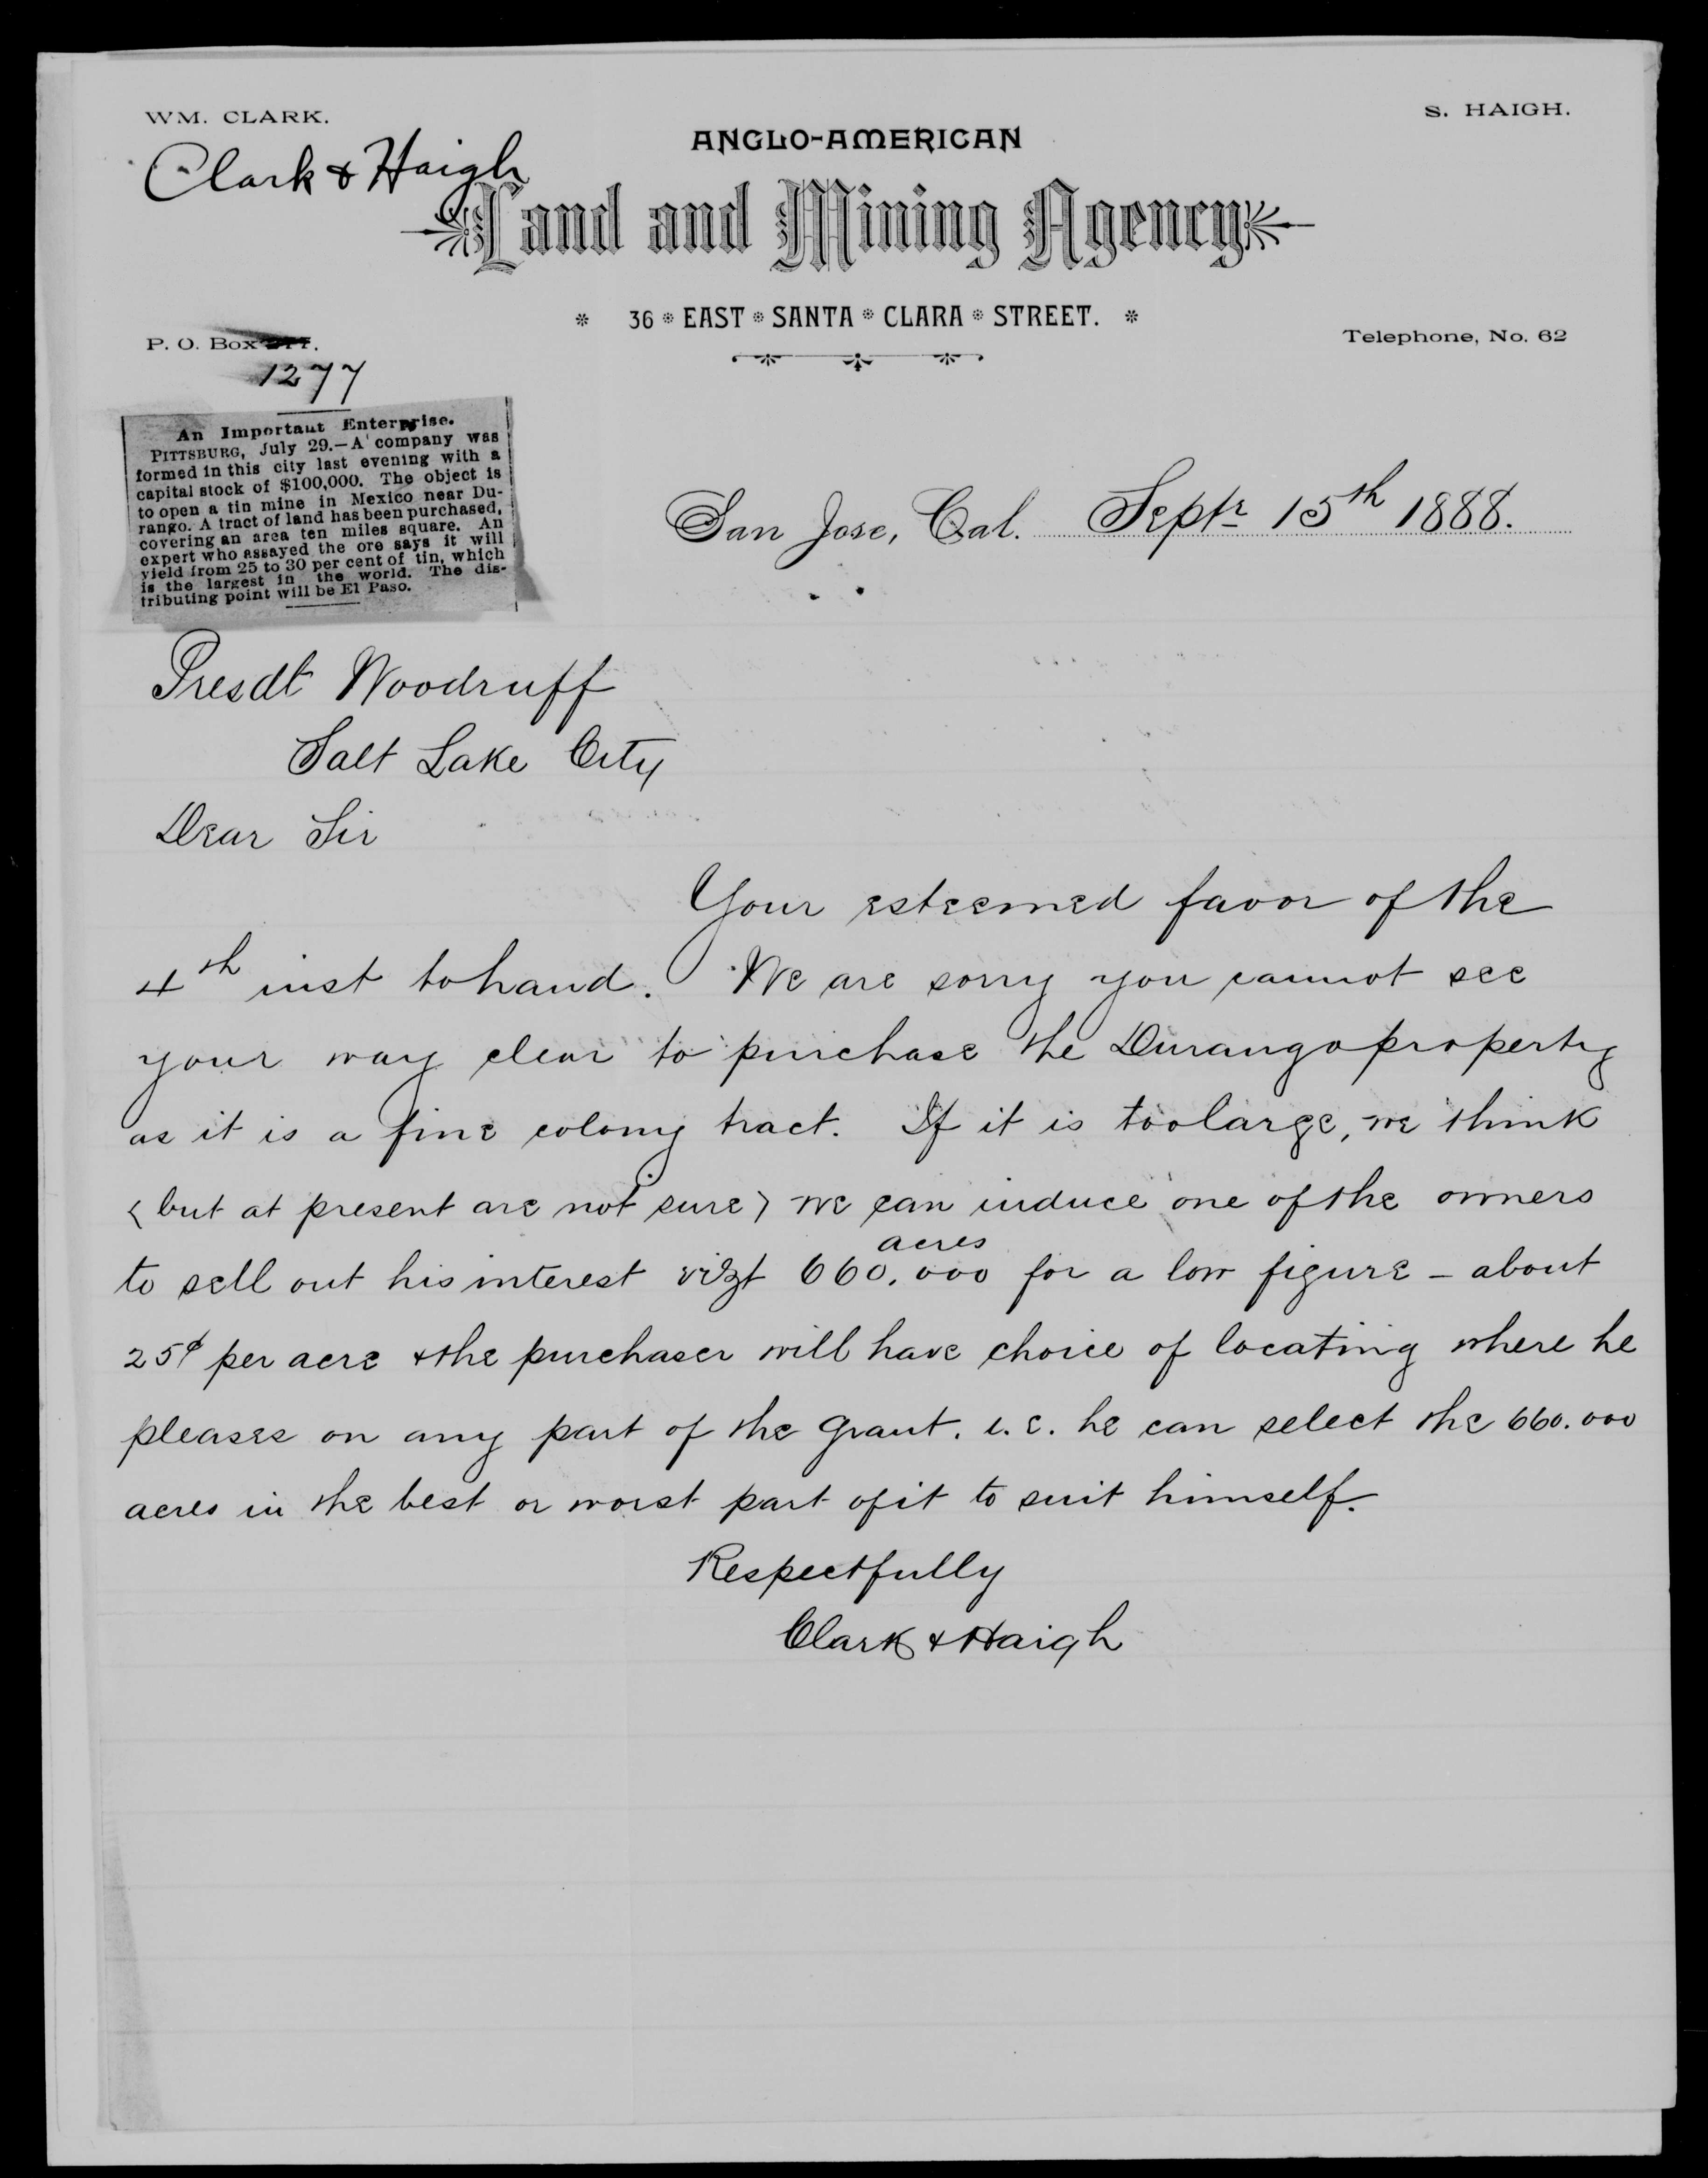 WM. CLARK.
S. HAIGH.
Clark & Haigh
ANGLO-AMERICAN
Land and Mining Agency
36 EAST SANTA CLARA STREET.
P. O. Box
Telephone, No. 62
1277
An Important Enterprise.
PITTSBURG, July 29.—A company was
formed in this city last evening with a
capital stock of $100,000. The object is
to open a tin mine in Mexico near Du-
rango. A tract of land has been purchased,
covering an area ten miles square. An
expert who assayed the ore says it will
yield from 25 to 30 per cent of tin, which
is the largest in the world. The dis-
tributing point will be El Paso.
San Jose, Cal. Septr 15th 1888.
Presdt Woodruff
Salt Lake City
Dear Sir
Your esteemed favor of the
4th inst to hand. We are sorry you cannot see
your way clear to purchase the Durango property
as it is a fine colony tract. If it is too large, we think
(but at present are not sure) we can induce one of the owners
acres
to sell out his interest vizt 660,000 for a low figure – about
25¢ per acre & the purchaser will have choice of locating where he
pleases on any part of the grant. i.e. he can select the 660.000
acres in the best or worst part of it to suit himself.
Respectfully
Clark & Haigh